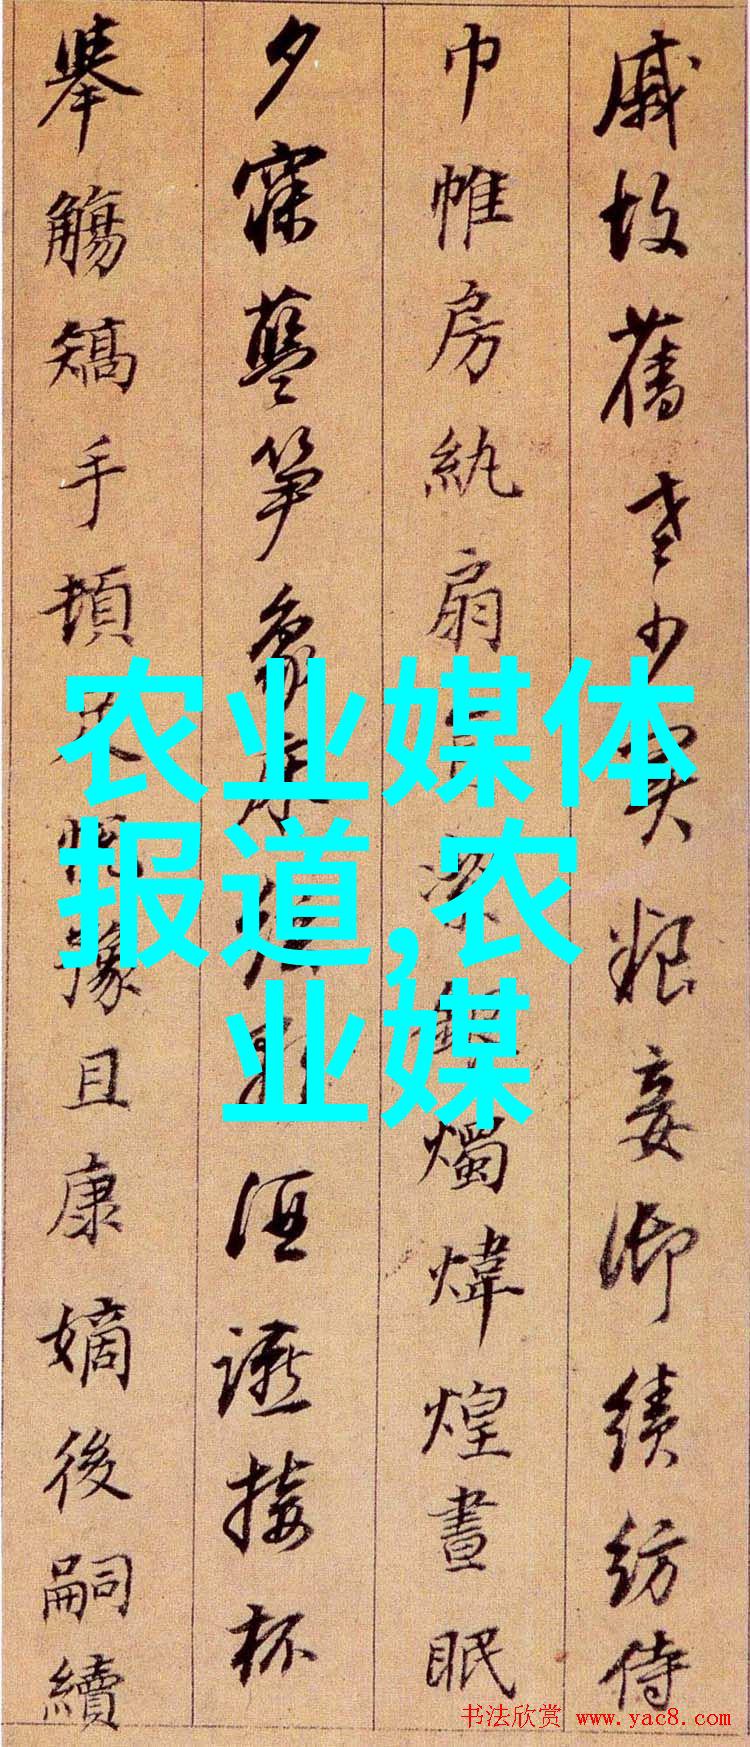 戚故舊老少異粮妾御績紡侍
巾帷房紈扇燭煒煌晝眠
夕寐藍笋象床酒讌接杯
舉觴矯手頓足悅豫且康嫡後嗣續
农业媒体
报道,农
业媒
书法欣赏 www.yac8.com